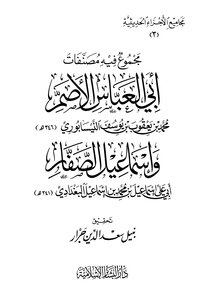 مجاميع الأجزاء الحديثية
(٣)
مجموع فيه مصنفات
أبي العباس الأصم
محمد بن يعقوب بن يوسف النيسابوري (٣٤٦ هـ)
وإسماعيل الصفار
أبي علي إسماعيل بن محمد بن إسماعيل البغدادي (٣٤١ هـ)
تحقيق
نبيل سعد الدين جرار
دار البشائر الإسلامية